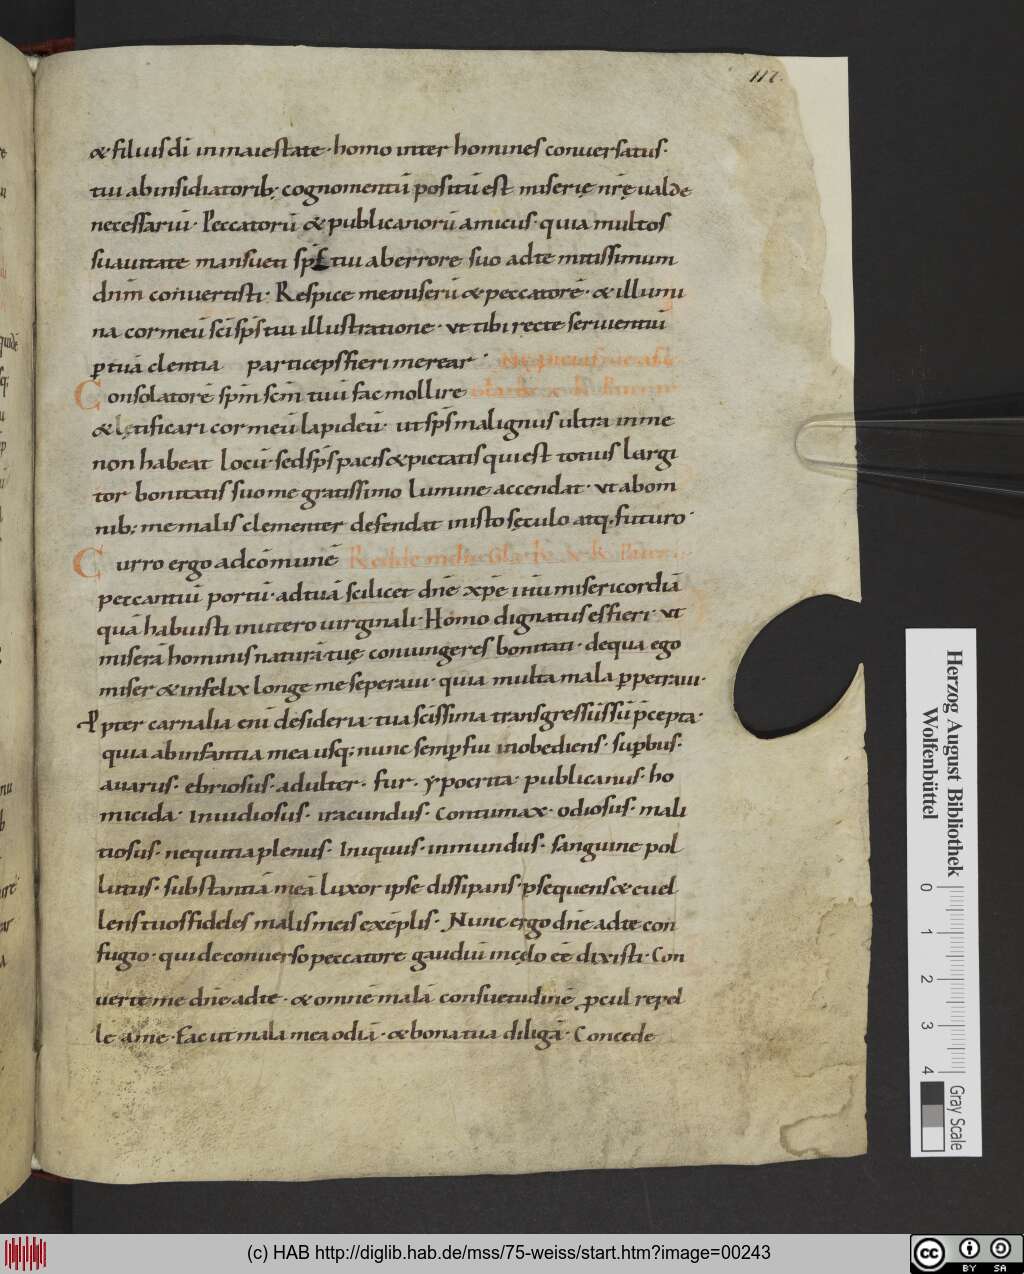 117.
& filius dī in maiestate · homo inter homines conuersatus ·
tui ab insidiatorib; cognomentū positū est miserię nrę ualde
necessariū · Peccatorū & publicanorū amicus · quia multos
suauitate mansueti sps tui ab errore suo ad te mitissimum
dnm conuertisti · Respice me miserū & peccatorē · & illumi
na cor meū sci sps tui illustratione · ut tibi recte seruientiū
p tuā clentia particeps fieri merear ·
Consolatorē spm scm tuū fac mollire
& lętificari cor meū lapideū · ut sps malignus ultra in me
non habeat locū · sed sps pacis & pietatis qui est totius largi
tor bonitatis suo me gratissimo lumine accendat · ut ab om
nib; me malis clementer defendat in isto sęculo atq, futuro ·
Curro ergo ad cōmunē Redde mihi Gla K x K Pat
peccantiū portū · ad tuā scilicet dne xpe ihu misericordiā
quā habuisti in utero uirginali · Homo dignatus es fieri · ut
miserā hominis naturā tuę coniungeres bonitati · de qua ego
miser & infelix longe me seperaui · quia multa mala ppetraui ·
Ppter carnalia eni desideria tua scissima transgressus sū pcepta ·
quia ab infantia mea usq; nunc semp fui inobediens · supbus ·
auarus · ebriosus · adulter · fur · ypocrita · publicanus · ho
micida · Inuidiosus · iracundus · Contumax · odiosus · mali
tiosus · nequitia plenus · Iniquus · inmundus · sanguine pol
lutus · substantiā meā luxor ipse dissipans · psequens & euel
lens tuos fideles malis meis exēplis · Nunc ergo dne ad te con
fugio · qui de conuerso peccatore gaudiū in cęlo eē dixisti · Con
uerte me dne ad te · & omnē malā consuetudinē pcul repel
le a me · Fac ut mala mea odiā · & bona tua diligā · Concede
Herzog August Bibliothek
Wolfenbüttel
0 1 2 3 4
Gray Scale
(c) HAB http://diglib.hab.de/mss/75-weiss/start.htm?image=00243
cc BY SA